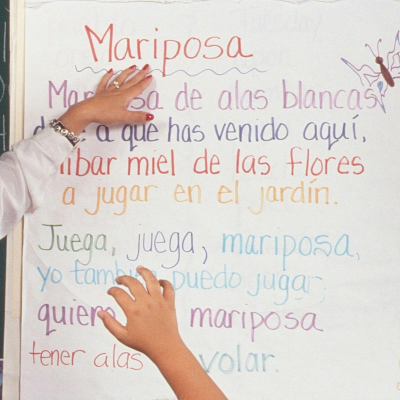 Mariposa
Mariposa de alas blancas
a que has venido aquí,
libar miel de las flores
a jugar en el jardín.
Juega, juega, mariposa,
yo también puedo jugar;
quiero mariposa
tener alas volar.